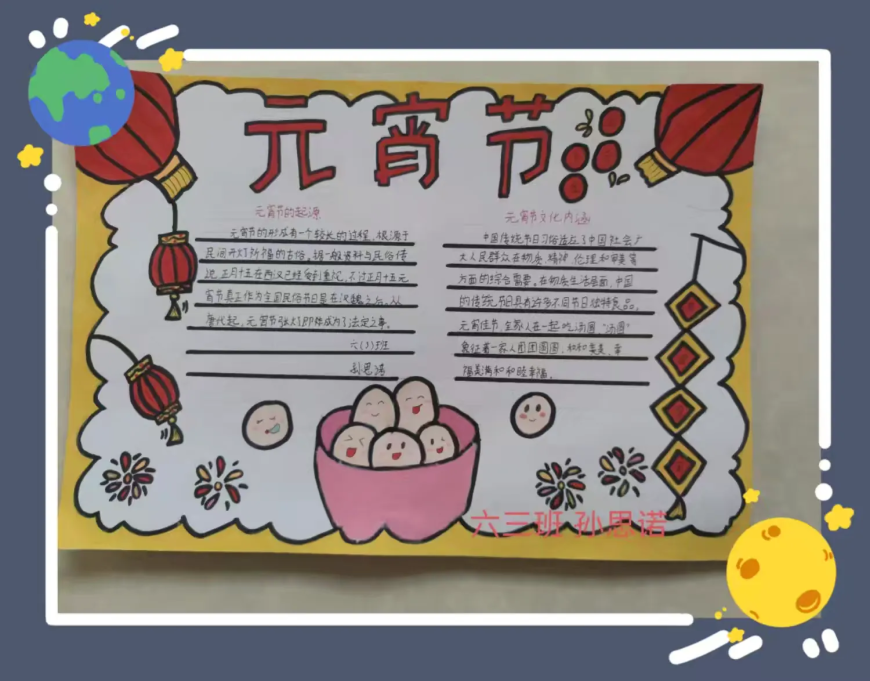 元宵节
元宵节的起源
元宵节的形成有一个较长的过程，根源于
民间开灯祈福的古俗。据一般资料与民俗传
说，正月十五在西汉已经受到重视，不过正月十五元
宵节真正作为全国民俗节日是在汉魏之后。从
唐代起，元宵节张灯即成为了法定之事。
六(3)班
孙思诺
元宵节文化内涵
中国传统节日习俗适应了中国社会广
大人民群众在物质 精神 伦理和审美等
方面的综合需要。在物质生活层面，中国
的传统节日具有许多不同节日独特食品。
元宵佳节，全家人在一起吃汤圆，“汤圆”
象征着一家人团团圆圆，和和美美，幸
福美满和和睦幸福。
六三班 孙思诺